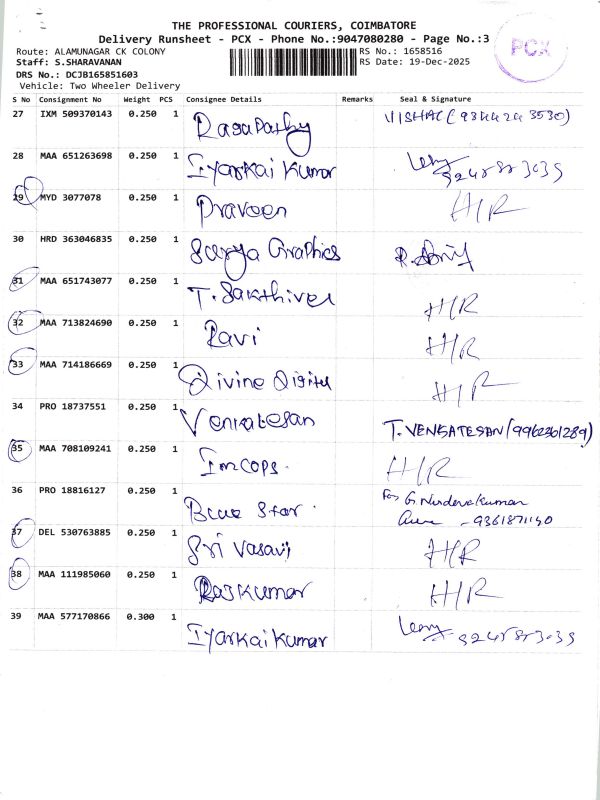 THE PROFESSIONAL COURIERS, COIMBATORE
Delivery Runsheet - PCX - Phone No.:9047080280 - Page No.:3
PCX
Route: ALAMUNAGAR CK COLONY RS No.: 1658516
Staff: S.SHARAVANAN RS Date: 19-Dec-2025
DRS No.: DCJB165851603
Vehicle: Two Wheeler Delivery
S No Consignment No Weight PCS Consignee Details Remarks Seal & Signature
27 IXM 509370143 0.250 1 Rasapathy
28 MAA 651263698 0.250 1 Iyarkai Kumar
29 MYD 3077078 0.250 1 Praveen H/R
30 HRD 363046835 0.250 1 Surya Graphics
31 MAA 651743077 0.250 1 T. Sakthivel H/R
32 MAA 713824690 0.250 1 Ravi H/R
33 MAA 714186669 0.250 1 Divine Digital H/R
34 PRO 18737551 0.250 1 Venkatesan T. VENKATESAN (9962361289)
35 MAA 708109241 0.250 1 Imcops. H/R
36 PRO 18816127 0.250 1 Blue Star. For G. Kumar
9361871140
37 DEL 530763885 0.250 1 Sri Vasavi H/R
38 MAA 111985060 0.250 1 Rajkumar H/R
39 MAA 577170866 0.300 1 Iyarkai Kumar